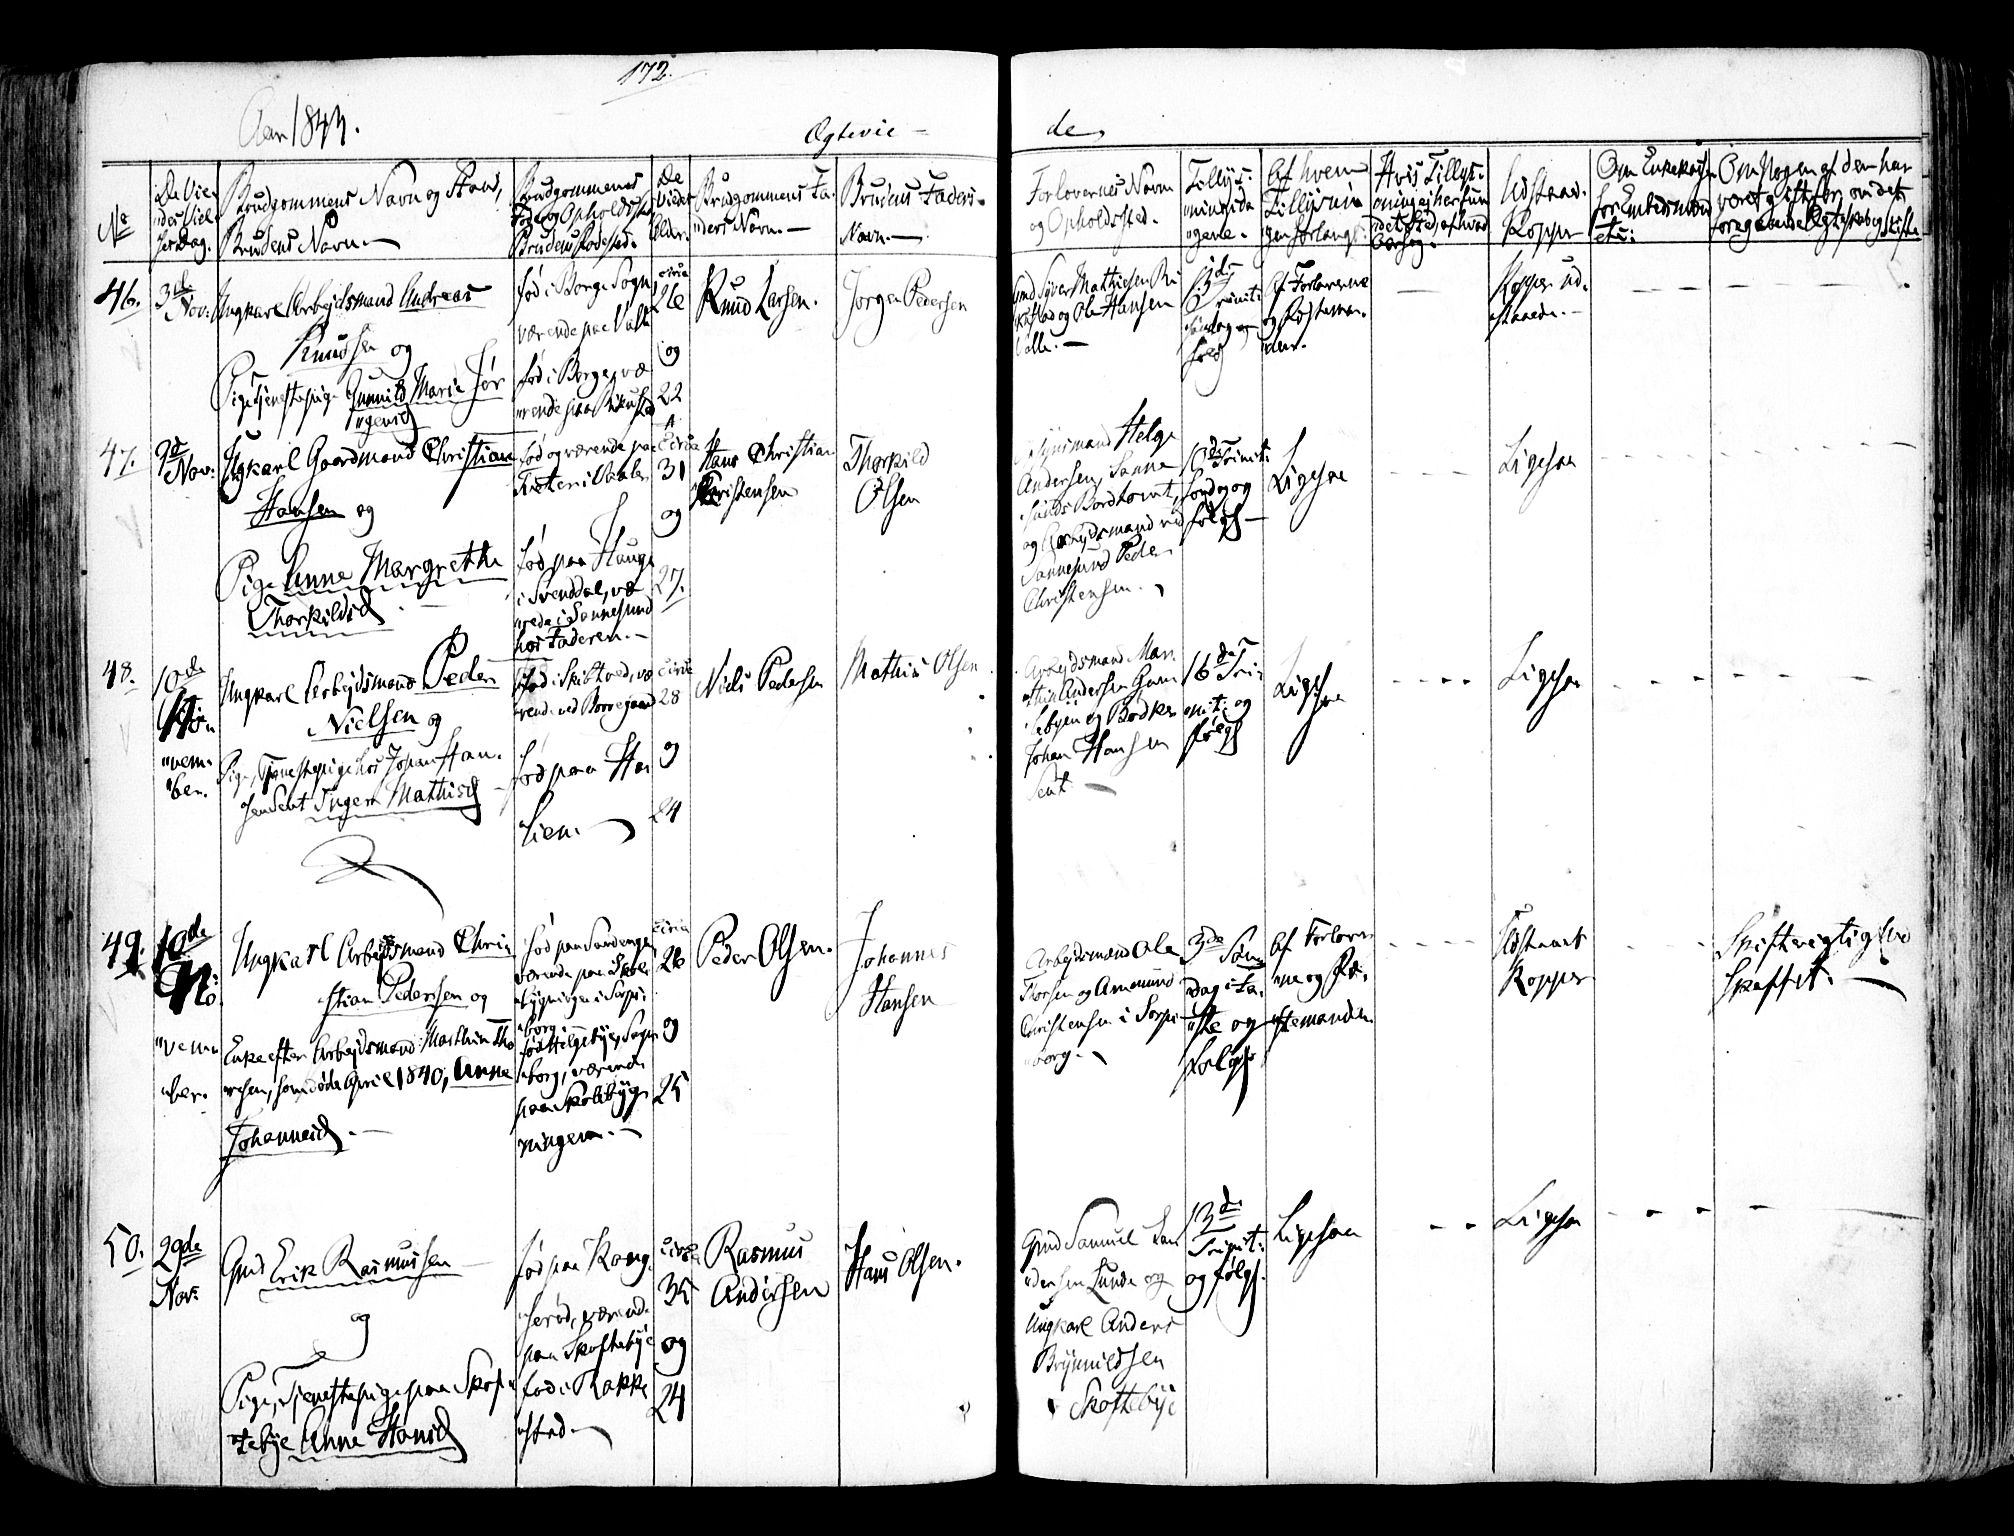 172.
Aar 1844.
Ægtevie-
de,
No
De Vie-
des Viel-
sesdag.
Brudgommens Navn og Stand,
og
Brudens Navn.
Brudgommens
Føde og Opholdssted
Brudens Fødested.
De
Viedes
Alder.
Brudgommens Fa-
ders Navn.
Brudens Faders
Navn.
Forlovernes Navn
og Opholdssted.
Tillys-
ningsda-
gene.
Af hvem
Tillysnin-
gen forlangt.
Hvis Tillys-
ning ej her fun-
det sted, af hvad
Aarsag.
Udstaad.
Kopper
Om Enkekasse
for Embedsmænd
etc:
Om Nogen af dem har
været gift før, om det
foregaaende Ægteskab og Skifte
46.
3de
Nov:
Ungkarl Arbejdsmand Andreas
Knudsen og
Pige Tjenestepige Gunnild Marie Jør
gensd
født i Borge Sogn,
værende paa Valle
født i Borge, væ
rende paa
circa
26
og
22
Knud Larsen.
Jørgen Pedersen
Gmd Syver Mathiesen
og Ole Hansen
Valle.
Trinit:
Søndag og
følg
Af Forloverne
og Fæsteman-
den.
Kopper ud-
staaede.
47.
9de
Nov:
Ungkarl Gaardmand Christian
Hansen og
Pige Anne Margrethe
Thorkildsd
født og værende paa
født paa Hauge
i Svenddal, væ
rende i Sannesund
hos Faderen.
circa
31
og
27.
Hans Christian
Christensen
Thorkild
Olsen
Helge
Andersen, Sanne
sunds Bordtomt,
og Arbejdsmand ved
Sannesund Peder
Christensen.
Trinit:
Søndag og
følgd
Ligesaa
Ligesaa
48.
10de
No
vem-
ber.
Ungkarl Arbejdsmand Peder
Nielsen og
Pige, Tjenestepige hos Johan Han-
sen Sent Inger Mathisd
født i Skiptved, væ
rende ved Borregaard
født paa Ha
lien.
circa
28
og
24
Niels Pedersen
Mathis Olsen
Arbejdsmand Mar-
thin Andersen Gam
lebyen og Bødker
Johan Hansen
Sent
16de Tri-
nit: og
følgd
Ligesaa
Ligesaa
49.
10de
No
vem
ber.
Ungkarl Arbejdsmand Chri-
stian Pedersen og
Enke efter Arbejdsmand Mathias Tho
resen, som døde April 1840, Anne
Johannesd.
født paa Sandenge,
værende paa Skole
bygningen i Sarps-
borg
født Helgebye, Sogn
borg, værende
paa Skolebyg-
ningen.
circa
26
og
25
Peder Olsen.
Johannes
Hansen
Arbejdsmand Ole
Thorsen og Amund
Christensen i Sarps-
borg.
3de Søn
dag i Fa-
ste og
følgd
Af Forlover
ne og Fæ-
stemanden
Udstaaet
Kopper
Skiftevigtighed
skaffet.
50.
29de
Nov:
Gmd Erik Rasmussen
og
Pige, Tjenestepige paa Skof-
tebye Anne Hansd
født paa Kong-
serød, værende
paa Skoftebye
født i Rakke
stad.
circa
35
og
24
Rasmus
Andersen
Hans Olsen.
Gmd Samuel
dersen Lunde og
Ungkarl Anders
Brynnildsen
Skoftebye
13de
Trinit:
og følgd.
Ligesaa
Ligesaa